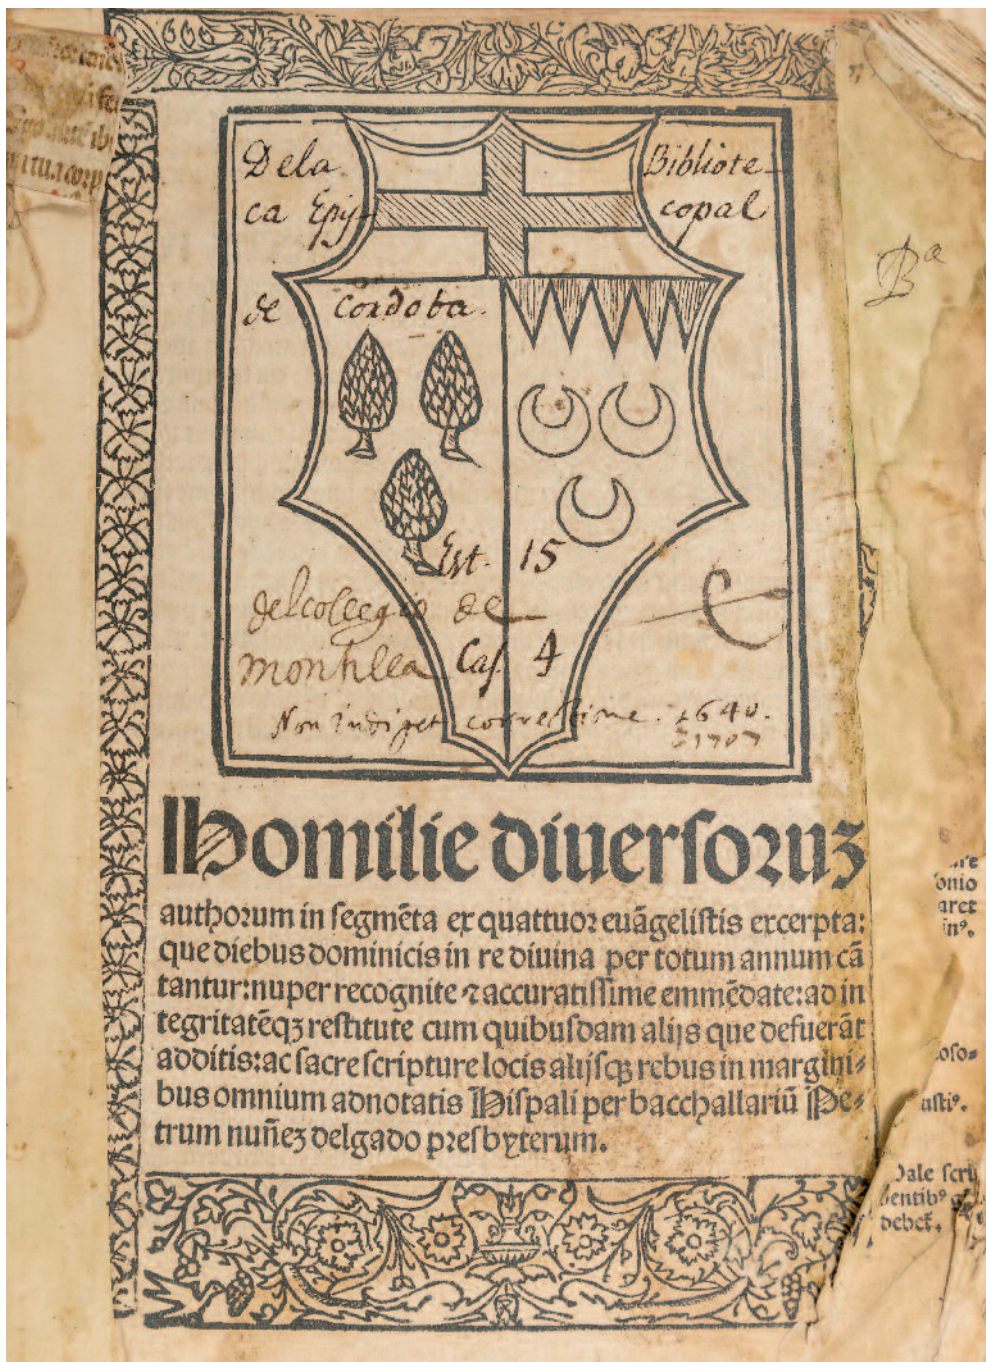 De la Bibliote-
ca Epis- copal
de Cordoba.
Bª
Est. 15
del collegio de
montilla Cax. 4
Non indiget correctione. 1640.
1707
Homilie diuersoruꝫ
authorum in segmēta ex quattuor euāgelistis excerpta:
que diebus dominicis in re diuina per totum annum cā
tantur: nuper recognite ⁊ accuratissime emmēdate: ad in
tegritatēqꝫ restitute cum quibusdam alijs que defuerāt
additis: ac sacre scripture locis alijsqꝫ rebus in margini⸗
bus omnium adnotatis Hispali per bacchallariū Pe⸗
trum nuñez delgado presbyterum.
onio
aret
oso⸗
usti⁹.
Dale scri
debet̄.